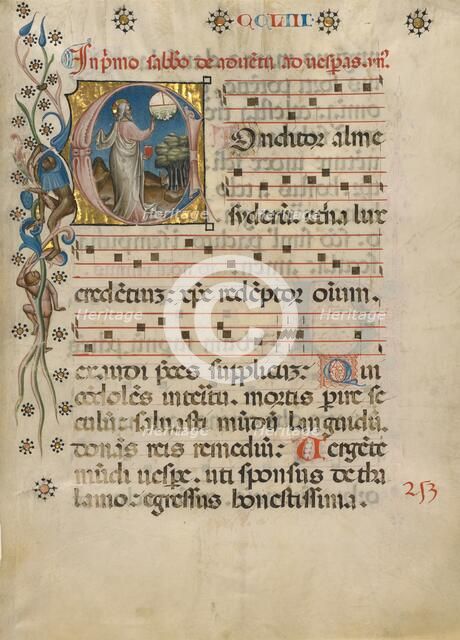 CCLIII
In primo sabbo de adventu ad vesperas. ym.
Conditor alme
syderū. etna lux
credentiuz. xpe redēptor oīum.
exaudi p̄ces supplicuz. Qui
condolēs interitu. mortis pire se
culū. saluasti mūdū languidū.
donās reis remediū. Vergēte
mūdi uespe. uti sponsus de tha
lamo. egressus honestissima.
253
Heritage
C
Heritage